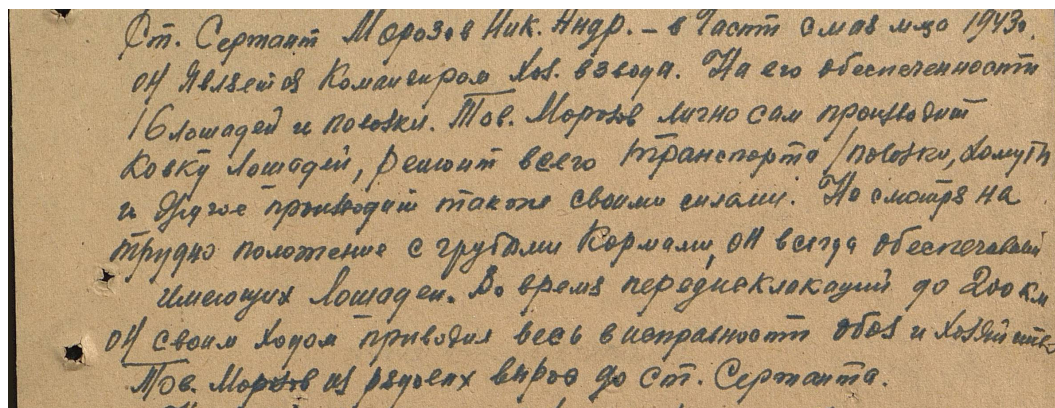 Ст. Сержант Морозов Ник. Андр. – в части с мая м-ца 1943г.
он является Командиром Хоз. взвода. На его обеспеченности
16 лошадей и повозки. Тов. Морозов лично сам производит
Ковку лошадей, ремонт всего транспорта /повозки, хомуты
и другое производит также своими силами. Не смотря на
трудно положение с грубыми Кормами, он всегда обеспечивает
имеющих Лошадей. Во время передислокаций до 200 км
он своим ходом приводил весь в исправности обоз и хозяйство
Тов. Морозов из рядовых вырос до ст. Сержанта.